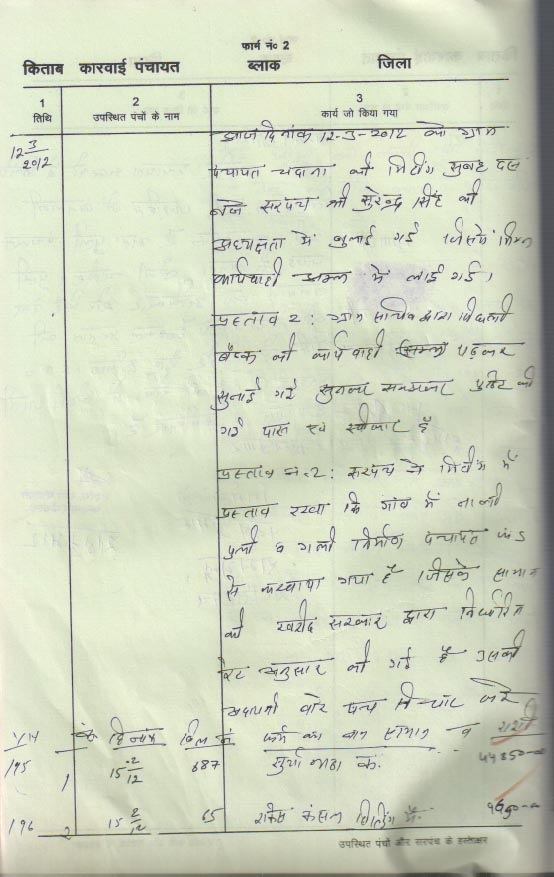 फार्म नं० 2
किताब कारवाई पंचायत ब्लाक जिला
1 2 3
तिथि उपस्थित पंचों के नाम कार्य जो किया गया
12-3-2012
आज दिनांक 12-3-2012 को ग्राम
पंचायत चदाना की मिटिंग सुबह दस
बजे सरपंच श्री सुरेन्द्र सिंह की
अध्यक्षता में बुलाई गई जिसमें निम्न
कार्यवाही अमल में लाई गई।
प्रस्ताव 2: ग्राम सचिव द्वारा पिछली
बैठक की कार्यवाही पढ़कर
सुनाई गई सुनकर समझकर की
गई पास एवं स्वीकार है
प्रस्ताव न.2: सरपंच ने मिटिंग में
प्रस्ताव रखा कि गांव में नाली
पुली व गली निर्माण पंचायत फंड
से करवाया गया है जिसके सामान
की खरीद सरकार द्वारा निर्धारित
रेट अनुसार की गई है उसकी
अदायगी बारे पंच विचार करें
V/N क्र. दिनांक बिल नं. फर्म का नाम सामान व राशी
195 1 15-2-12 687 44350-00
196 2 15-2-12 65
उपस्थित पंचों और सरपंच के हस्ताक्षर